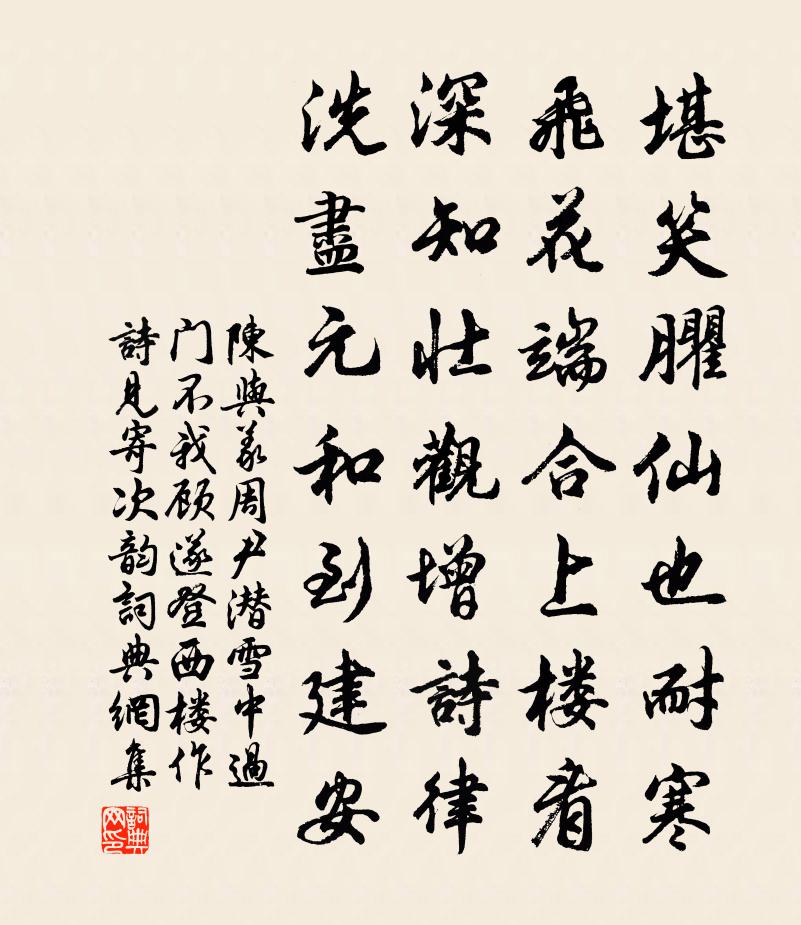 堪笑臞仙也耐寒
飛花端合上楼看
深知壮觀增詩律
洗盡元和到建安
陳與義周尹潜雪中過
门不我顾遂登西楼作
詩見寄次韵詞典網集
詞典
网印